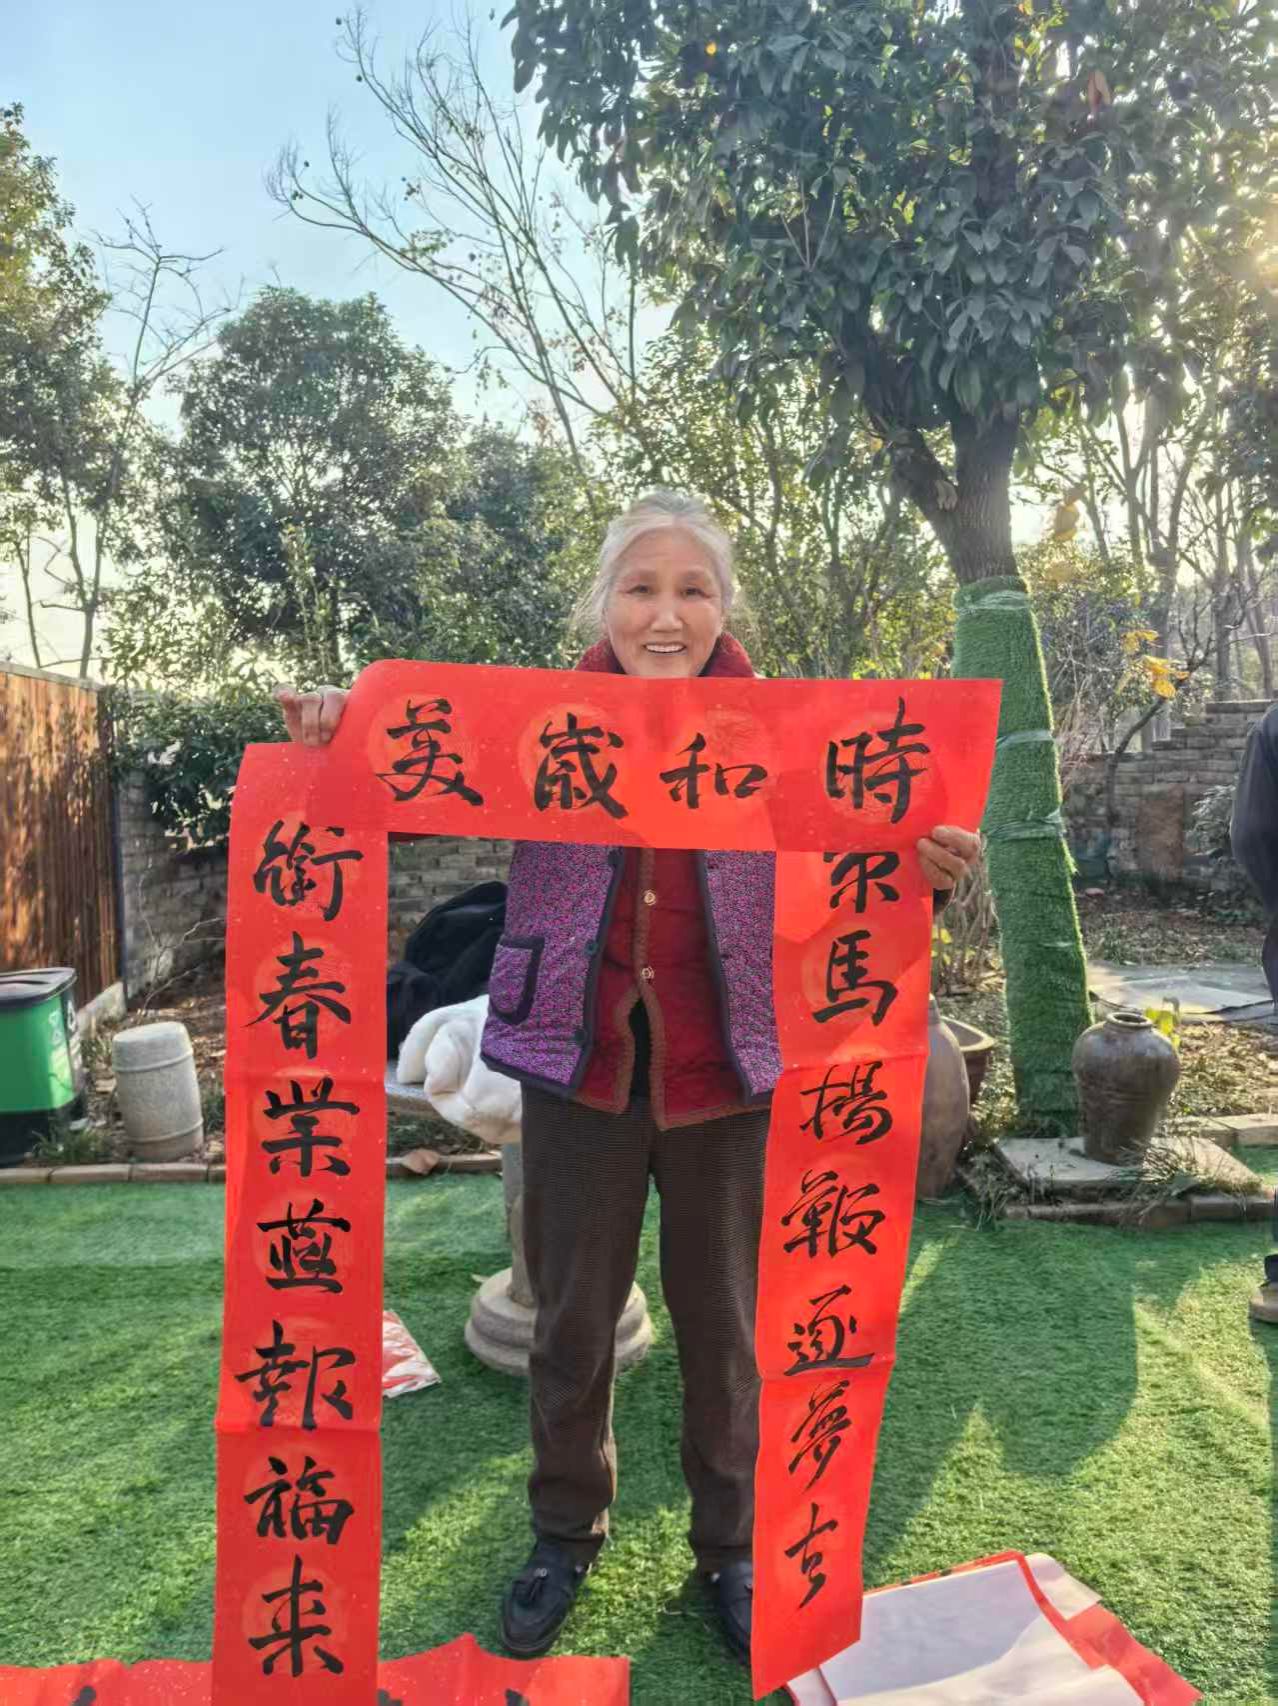 時和歲美
策馬揚鞭逐夢去
銜春紫燕報福来